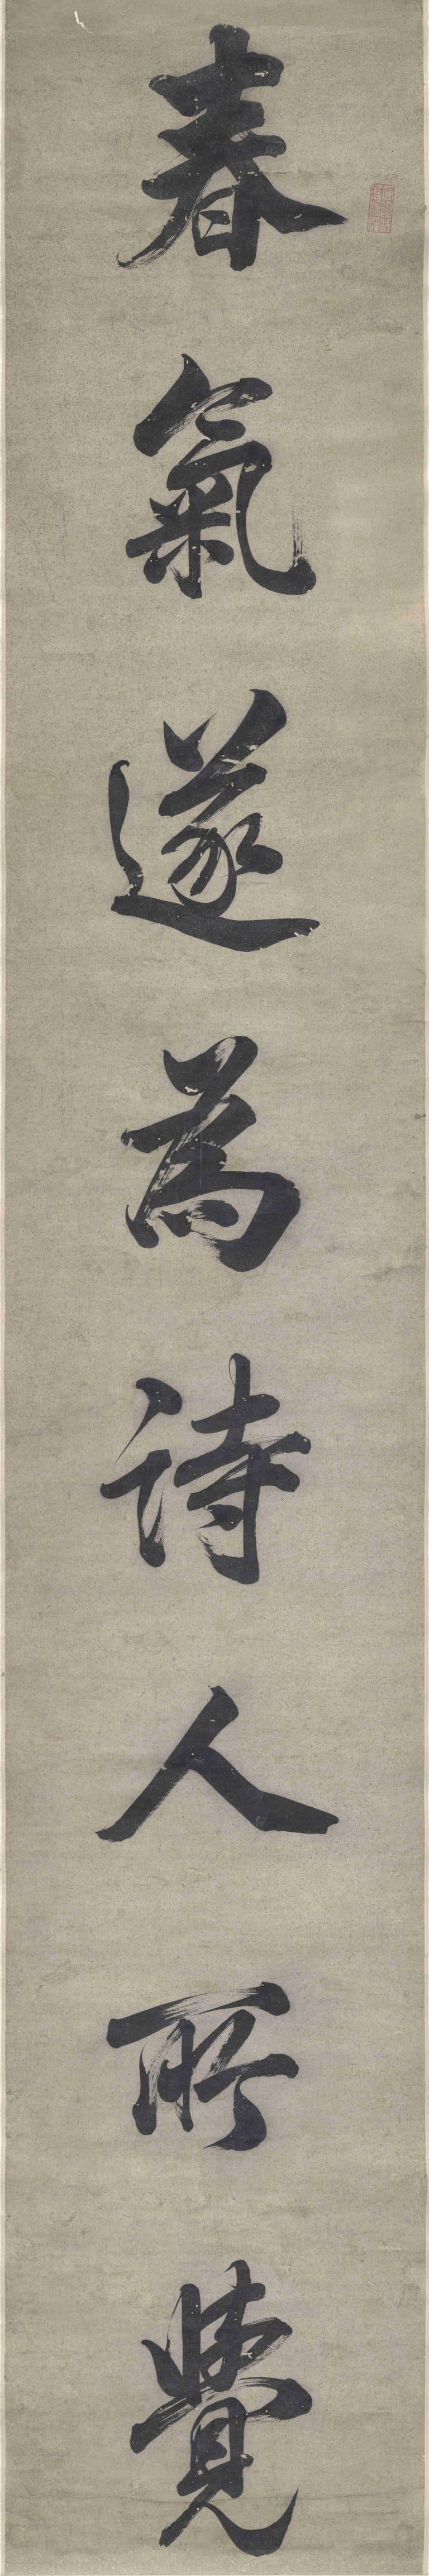 春氣遂為詩人所覺